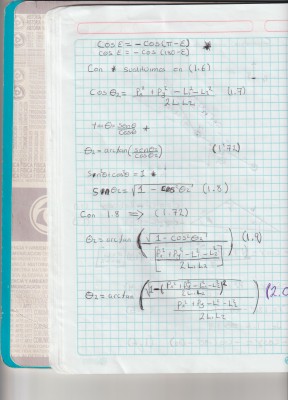 Cos ε = -Cos(π-ε) *
Cos ε = -Cos(180-ε)
Con * sustituimos en (1.6)
Cosθ₂ = Px² + Py² - L₁² - L₂² / 2L₁L₂ (1.7)
θ = Senθ / Cosθ
θ₂ = arctan(senθ₂ / cosθ₂) (1.72)
Sen²θ + cos²θ = 1 *
Senθ₂ = √1 - cos²θ₂ (1.8)
Con 1.8 => (1.72)
θ₂ = arctan (√1 - cos²θ₂ / [Px² + Py² - L₁² - L₂² / 2L₁L₂]) (1.9)
θ₂ = arctan (√1 - (Px² + Py² - L₁² - L₂² / 2L₁L₂)² / Px² + Py² - L₁² - L₂² / 2L₁L₂) (2.0